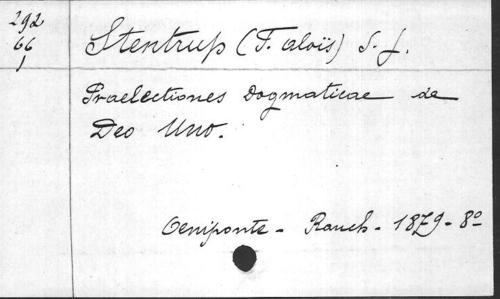 292
66
1
Stentrup (F. Aloïs) S. J.
Praelectiones Dogmaticae de
Deo Uno.
Oeniponte - Rauch - 1879 - 8º